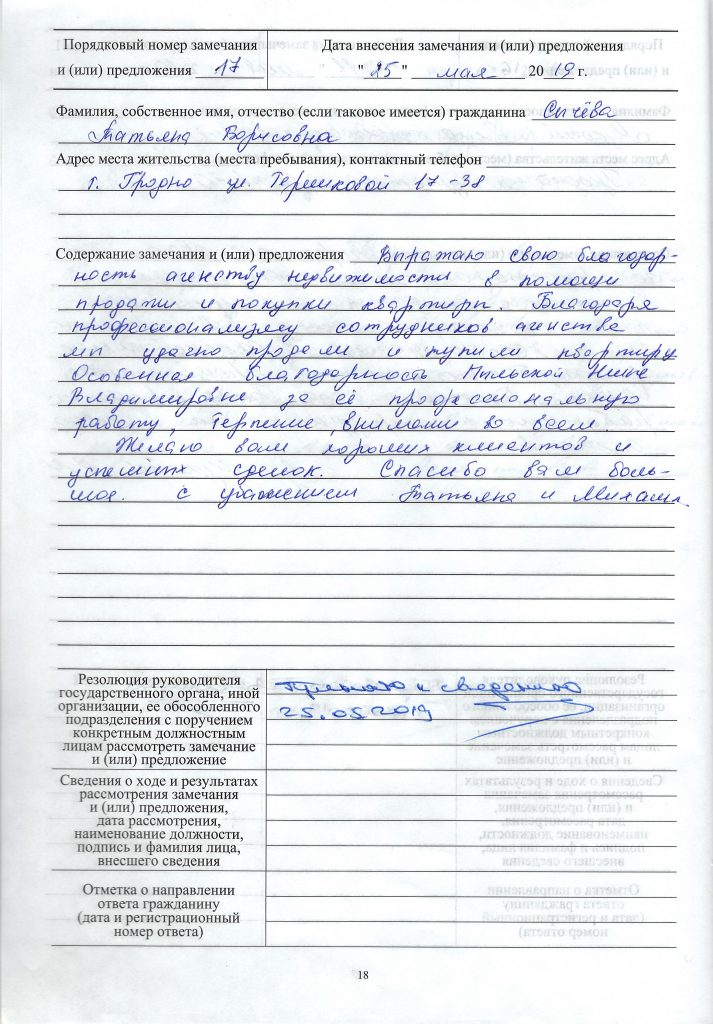 Порядковый номер замечания
и (или) предложения 17
Дата внесения замечания и (или) предложения
" 25 " мая 20 19 г.
Фамилия, собственное имя, отчество (если таковое имеется) гражданина Сычёва
Татьяна Борисовна
Адрес места жительства (места пребывания), контактный телефон
г. Гродно ул. Терешковой 17-38
Содержание замечания и (или) предложения Выражаю свою благодар-
ность агенству недвижимости в помощи
продажи и покупки квартиры. Благодаря
профессионализму сотрудников агенства
мы удачно продали и купили квартиру
Особенная благодарность Нине
Владимировне за её профессиональную
работу, терпение, внимание во всем.
Желаю вам хороших клиентов и
успешных сделок. Спасибо вам боль-
шое. с уважением Татьяна и Михаил.
Резолюция руководителя
государственного органа, иной
организации, ее обособленного
подразделения с поручением
конкретным должностным
лицам рассмотреть замечание
и (или) предложение
Принято к сведению
25.05.2019
Сведения о ходе и результатах
рассмотрения замечания
и (или) предложения,
дата рассмотрения,
наименование должности,
подпись и фамилия лица,
внесшего сведения
Отметка о направлении
ответа гражданину
(дата и регистрационный
номер ответа)
18